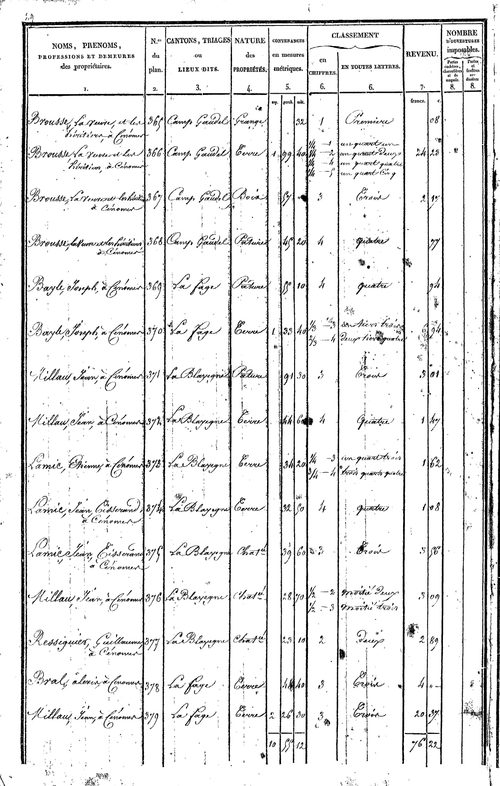 NOMS, PRENOMS, PROFESSIONS ET DEMEURES des propriétaires. N.os du plan. CANTONS, TRIAGES ou LIEUX-DITS. NATURE des PROPRIÉTÉS. CONTENANCES en mesures métriques. CLASSEMENT en CHIFFRES. EN TOUTES LETTRES. REVENU. NOMBRE D'OUVERTURES imposables.
1. 2. 3. 4. 5. 6. 6. 7. 8. 8.
Brousse, La veuve, et les héritiers, à Cénomes 365 Camp Gaudel Grange 32 1 Première 08
Brousse La veuve et les héritiers, à Cénomes 366 Camp Gaudel Terre 1 99 40 1/4 - 1 un quart un
1/4 - 2 un quart Deux 24 23
1/4 - 4 un quart quatre
1/4 - 5 un quart Cinq
Brousse, La veuve et les héritiers à Cénomes 367 Camp Gaudel Bois 3 Trois 2
Brousse, la veuve et les héritiers, à Cénomes 368 Camp Gaudel Pâture 45 20 4 quatre 77
Bayle, Joseph, à Cénomes 369 La fage Pâture 10 4 quatre 94
Bayle, Joseph, à Cénomes 370 La fage Terre 1 33 40 1/3 - 3 un tiers trois
2/3 - 4 Deux tiers quatre 94
Millau, Jean, à Cénomes 371 La Blayegne Pâture 91 30 3 Trois 3 01
Millau, Jean, à Cénomes 372 La Blayegne Terre 44 4 Quatre 1 47
Lamic, Etienne, à Cénomes 373 La Blayegne Terre 34 20 1/4 - 3 un quart trois
3/4 - 4 trois quarts quatre 1 62
Lamic, Jean, Tisserand, à Cénomes 374 La Blayegne Terre 32 50 4 quatre 1 08
Lamic, Jean, Tisserand, à Cénomes 375 La Blayegne Chat. 39 60 3 Trois 3 56
Millau, Jean, à Cénomes 376 La Blayegne Chat. 28 70 1/2 - 2 moitié Deux
1/2 - 3 moitié trois 3 09
Resseguier, Guillaume, à Cénomes 377 La Blayegne Chat. 23 10 2 Deux 2 89
Bral, alexis, à Cénomes 378 La fage Terre 40 3 Trois 4
Millau, Jean, à Cénomes 379 La fage Terre 2 26 30 3 Trois 20 37
10 12 76 22